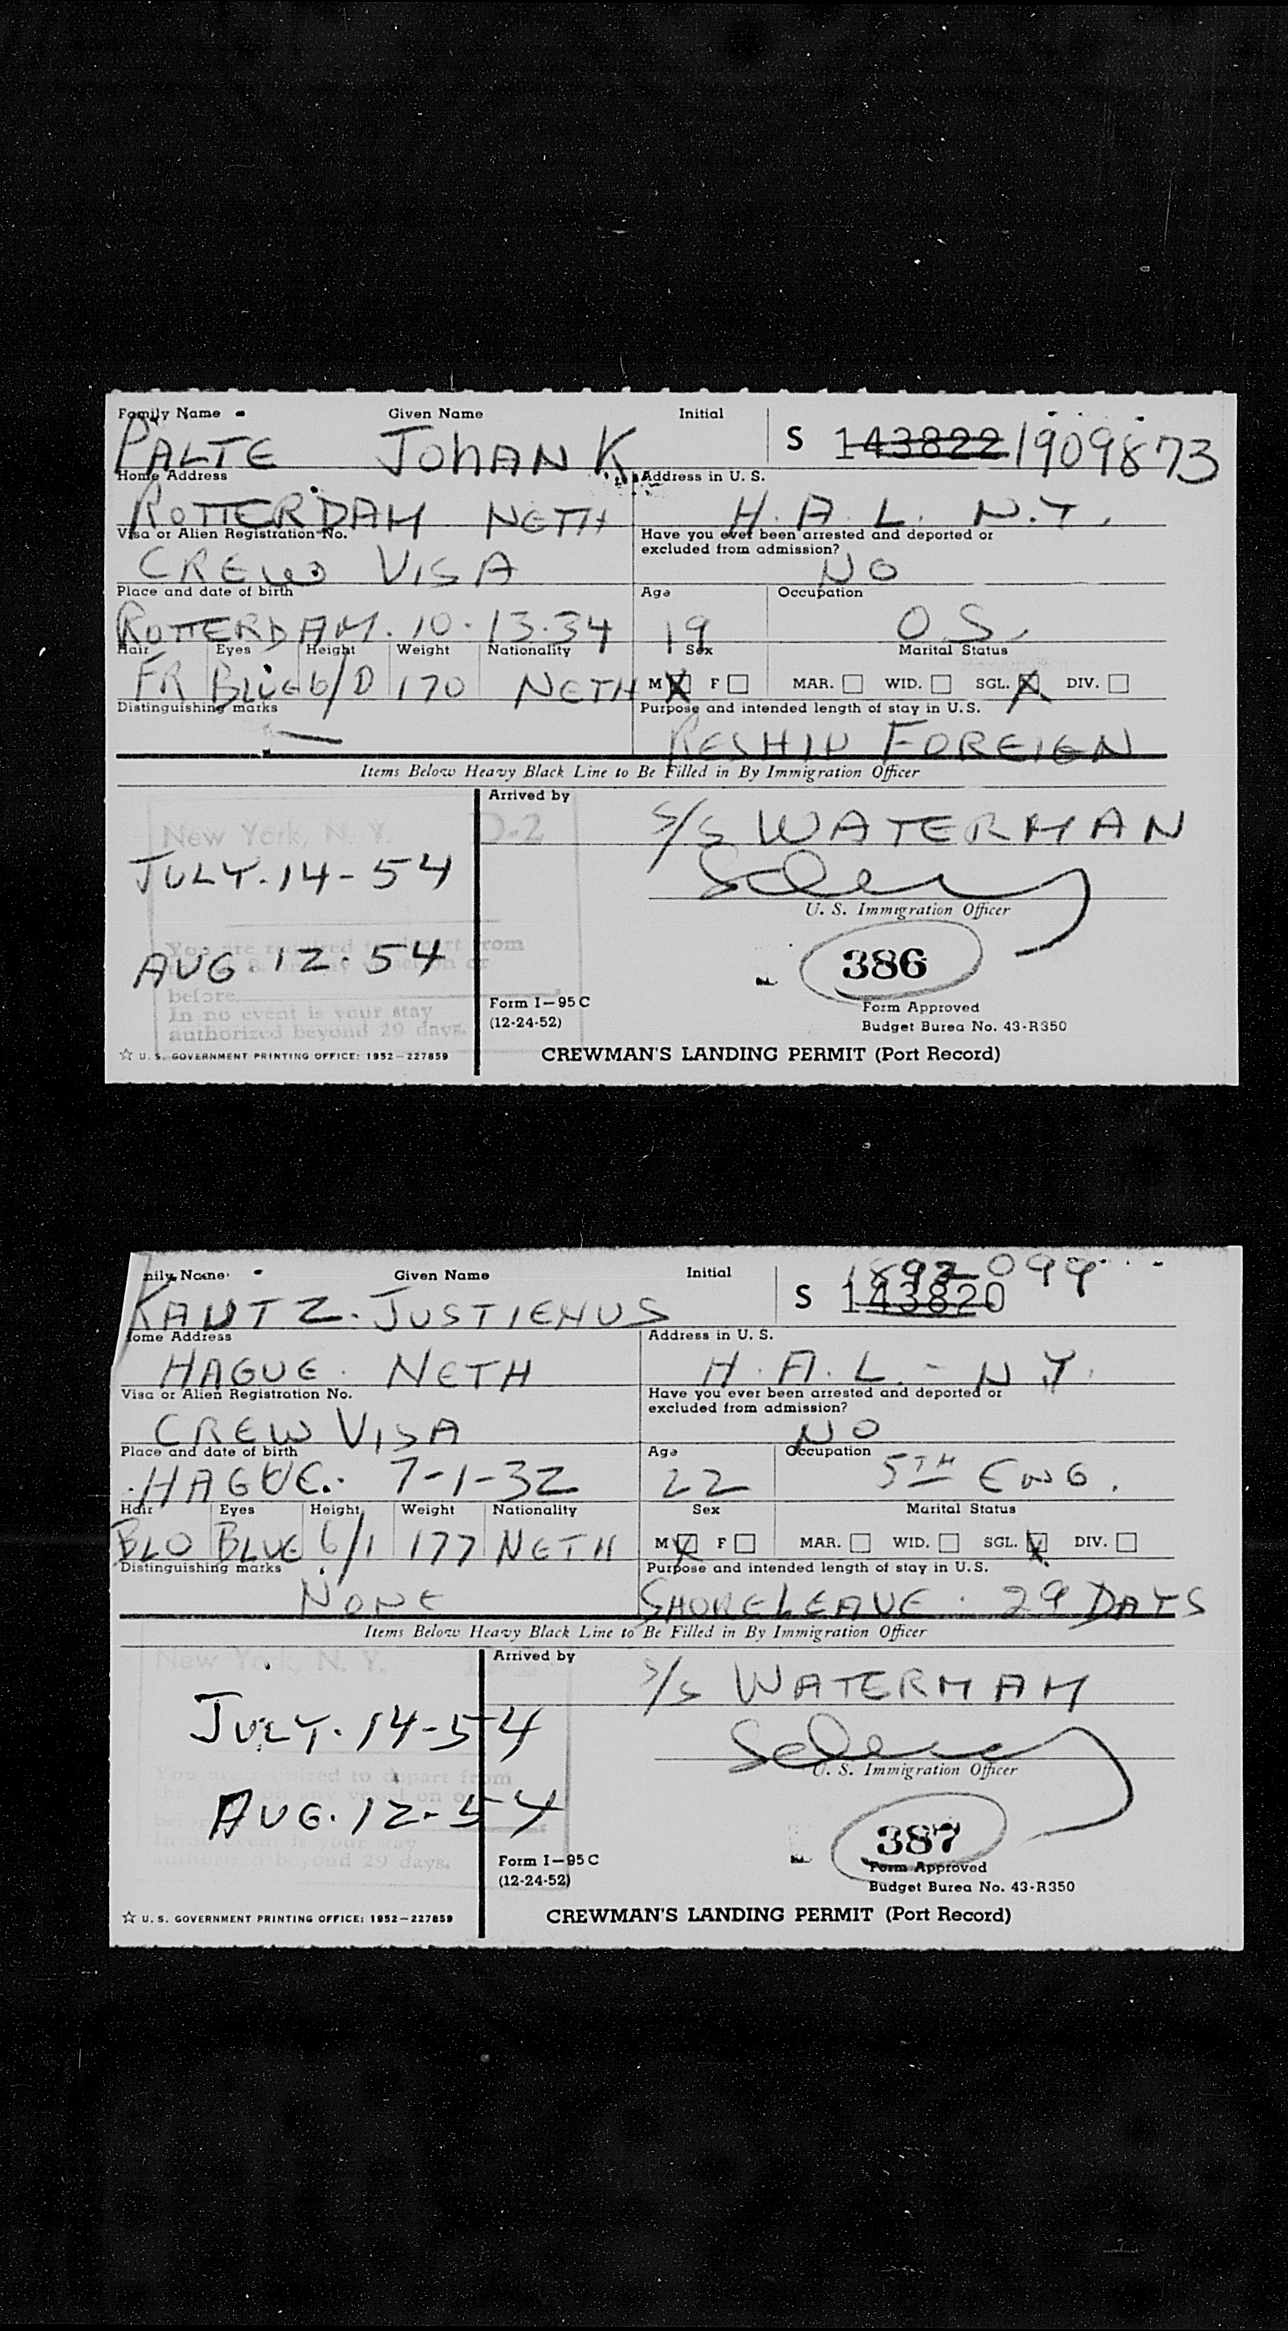 Family Name Given Name Initial
PALTE JOHAN K S 143822 1909873
Home Address Address in U. S.
ROTTERDAM NETH H. A. L. N.Y.
Visa or Alien Registration No. Have you ever been arrested and deported or
excluded from admission?
CREW VISA NO
Place and date of birth Age Occupation
ROTTERDAM. 10. 13. 34 19 O S.
Hair Eyes Height Weight Nationality Sex Marital Status
FR BLUE 6/0 170 NETH M F MAR. WID. SGL. DIV.
Distinguishing marks Purpose and intended length of stay in U.S.
— RESHIP FOREIGN
Items Below Heavy Black Line to Be Filled in By Immigration Officer
Arrived by
New York, N. Y. D-2 S/S WATERMAN
JULY. 14 - 54
U. S. Immigration Officer
You are required to depart from
AUG. 12. 54 386
before
In no event is your stay
authorized beyond 29 days.
Form I—95 C Form Approved
(12-24-52) Budget Burea No. 43-R350
☆ U. S. GOVERNMENT PRINTING OFFICE: 1952—227859 CREWMAN'S LANDING PERMIT (Port Record)
mily Name Given Name Initial 1892099
KAUTZ. JUSTIENUS S 143820
Home Address Address in U. S.
HAGUE. NETH H. A. L. - N Y.
Visa or Alien Registration No. Have you ever been arrested and deported or
excluded from admission?
CREW VISA NO
Place and date of birth Age Occupation
HAGUE. 7-1-32 22 5TH ENG.
Hair Eyes Height Weight Nationality Sex Marital Status
BLO BLUE 6/1 177 NETH M F MAR. WID. SGL. DIV.
Distinguishing marks Purpose and intended length of stay in U.S.
NONE SHORELEAVE. 29 DAYS
Items Below Heavy Black Line to Be Filled in By Immigration Officer
New York, N. Y. Arrived by
S/S WATERMAN
JULY. 14-54
U. S. Immigration Officer
to depart from
AUG. 12-54 387
authorized beyond 29 days.
Form I—95 C Form Approved
(12-24-52) Budget Burea No. 43-R350
☆ U. S. GOVERNMENT PRINTING OFFICE: 1952—227859 CREWMAN'S LANDING PERMIT (Port Record)